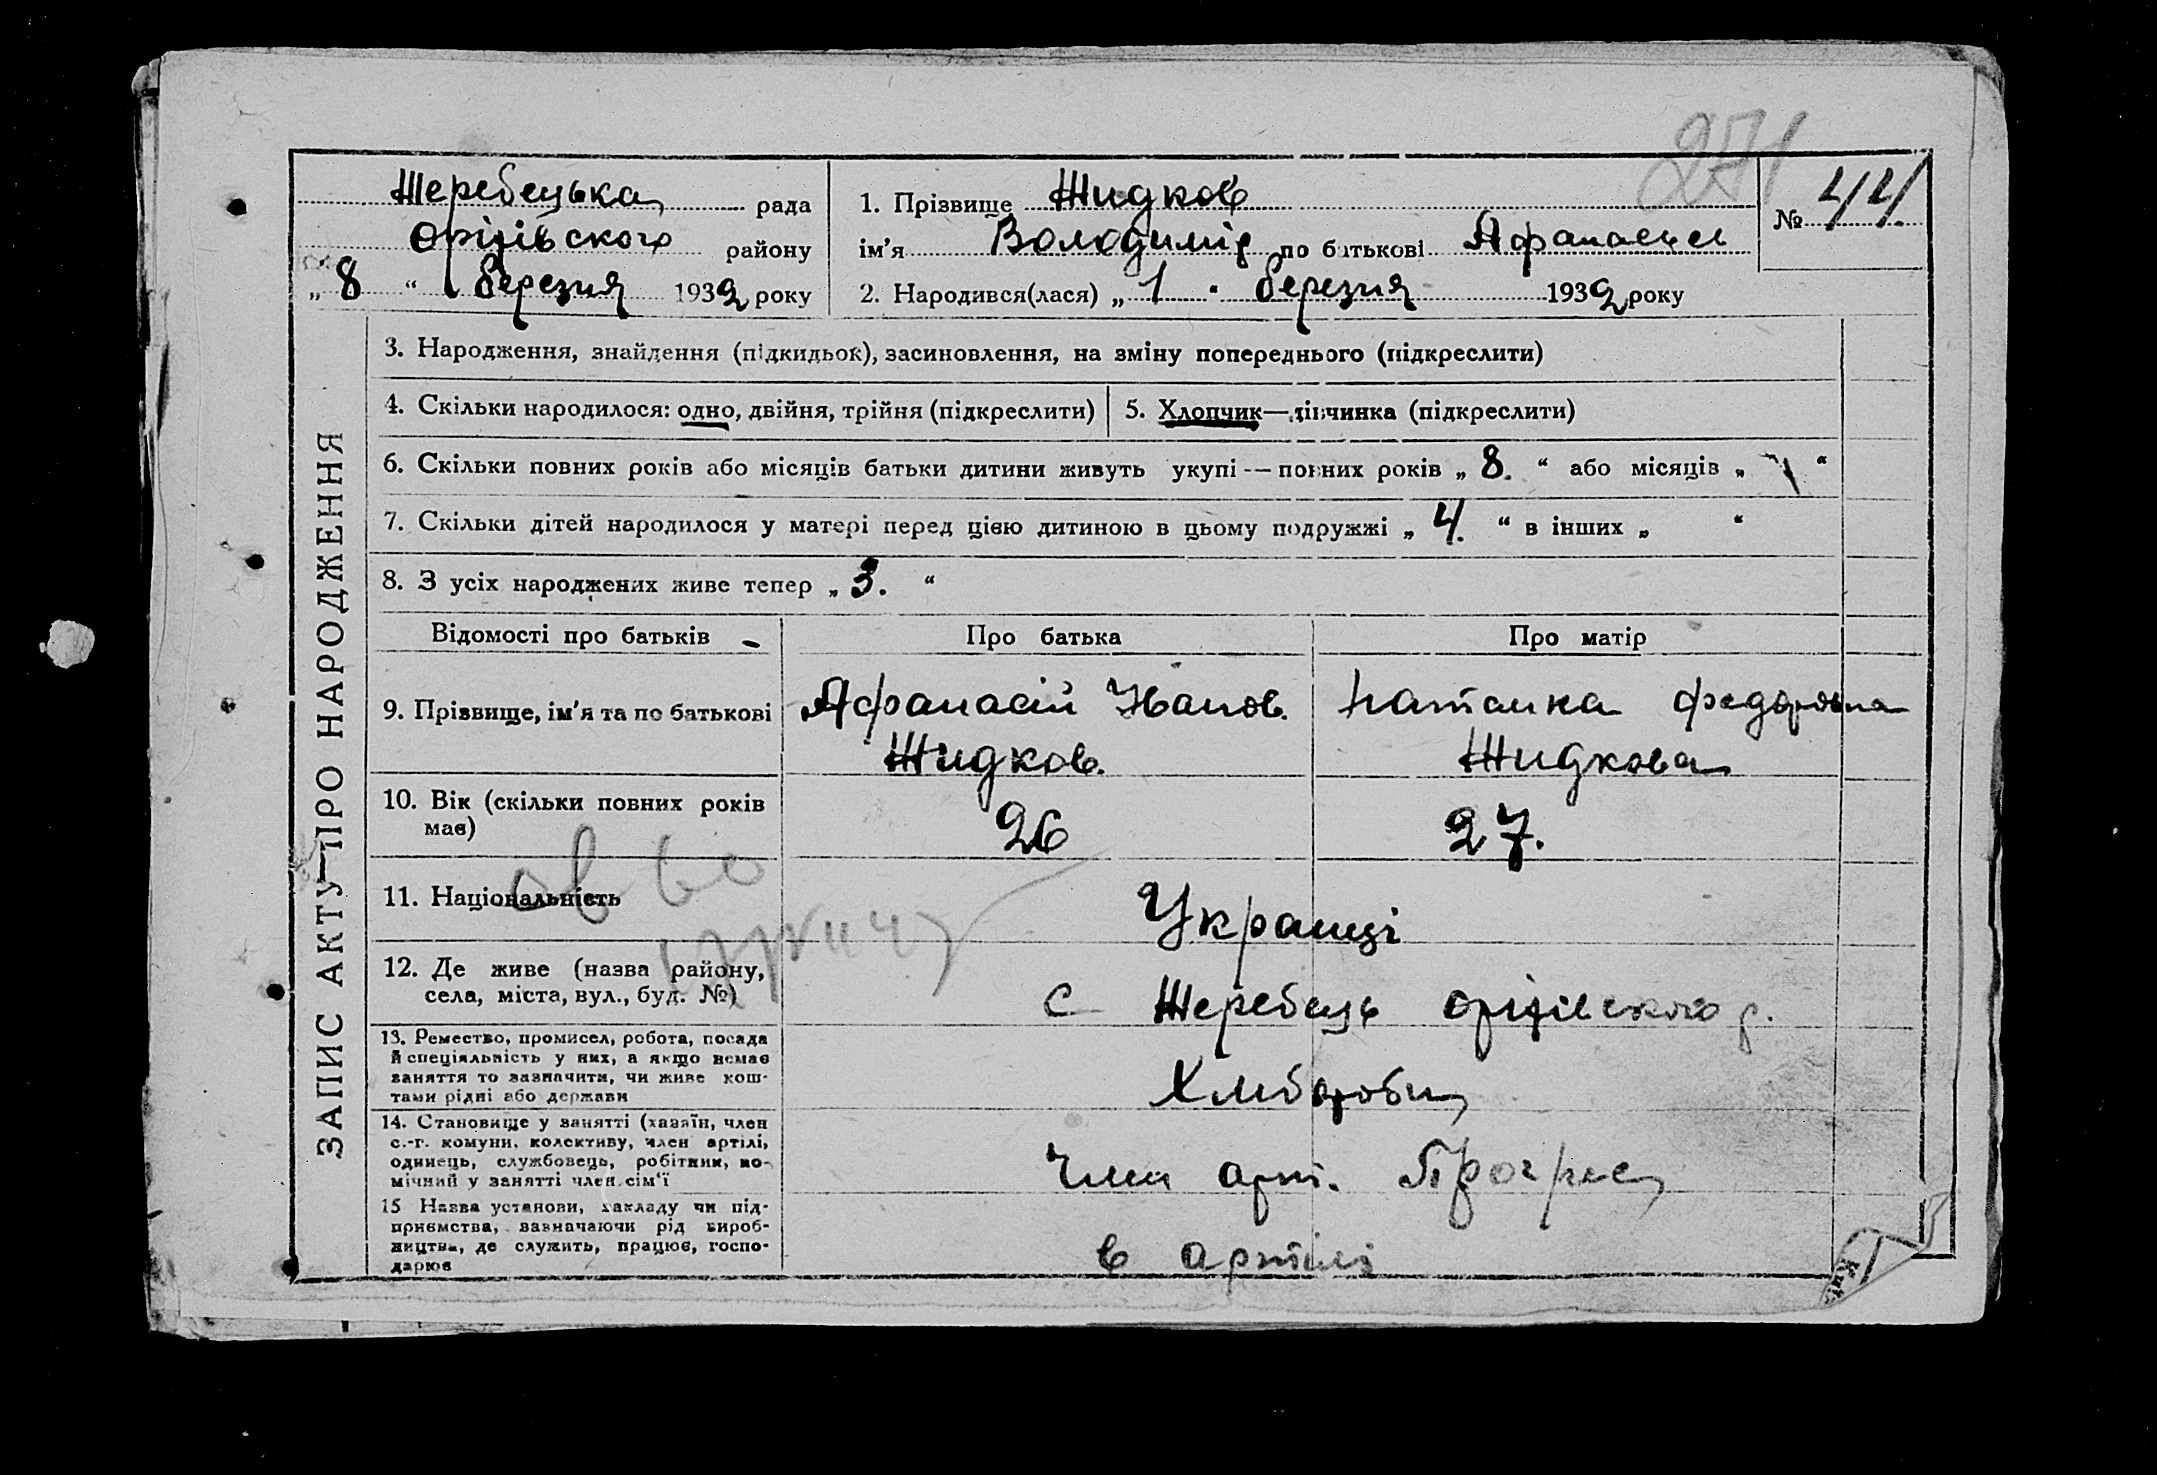 271
Жеребецька рада
Оріхівського району
„ 8 “ березня 1932 року
1. Прізвище Жидков
ім’я Володимір по батькові Афанасьєв
2. Народився(лася) „ 1 “ березня 1932 року
№ 44
ЗАПИС АКТУ ПРО НАРОДЖЕННЯ
3. Народження, знайдення (підкидьок), засиновлення, на зміну попереднього (підкреслити)
4. Скільки народилося: одно, двійня, трійня (підкреслити)
5. Хлопчик—дівчинка (підкреслити)
6. Скільки повних років або місяців батьки дитини живуть укупі — повних років „ 8. “ або місяців „ “
7. Скільки дітей народилося у матері перед цією дитиною в цьому подружжі „ 4. “ в інших „ “
8. З усіх народжених живе тепер „ 3. “
Відомості про батьків
Про батька
Про матір
9. Прізвище, ім’я та по батькові
Афанасій Иванов.
Жидков.
Наталка Федоровна
Жидкова
10. Вік (скільки повних років
має)
26
27.
11. Національність
Украинці
12. Де живе (назва району,
села, міста, вул., буд. №)
с Жеребець Оріхівського р.
13. Ремество, промисел, робота, посада
й спеціяльність у них, а якщо немає
заняття то зазначити, чи живе кош-
тами рідні або держави
Хліборобы
14. Становище у занятті (хазяїн, член
с.-г. комуни, колективу, член артілі,
одинець, службовець, робітник, по-
мічний у занятті член сім’ї
Член арт. Прогрес
15 Назва установи, закладу чи під-
приємства, зазначаючи рід вироб-
ництва, де служить, працює, госпо-
дарює
в артілі